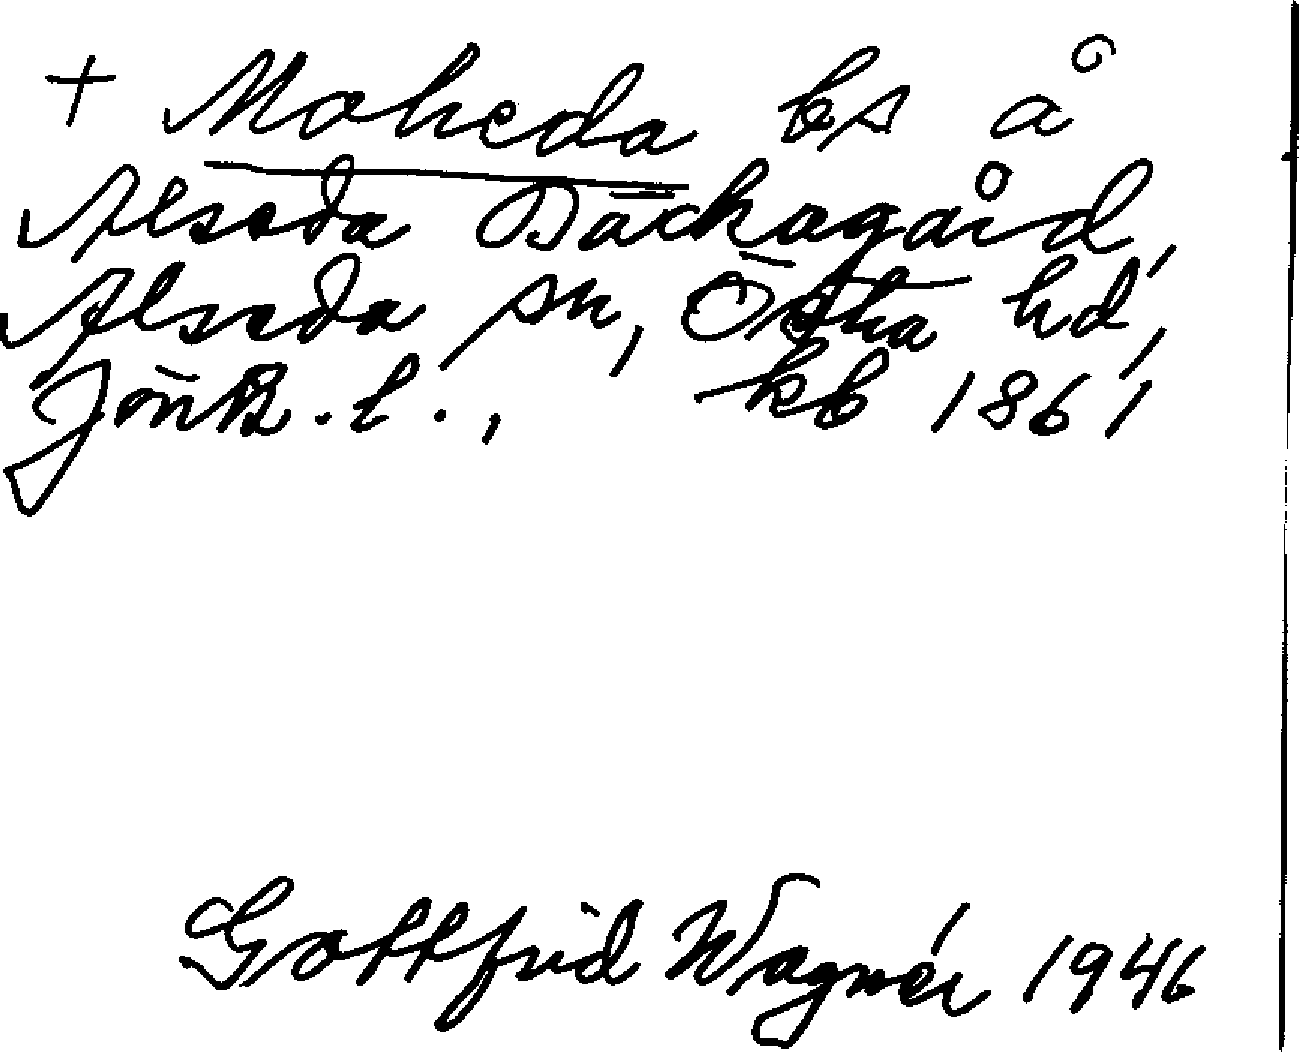 + Moheda bs å
Alseda Backagård,
Alseda sn, Östra hd,
Jönk. l., kb 1861
Gottfrid Wagnér 1946